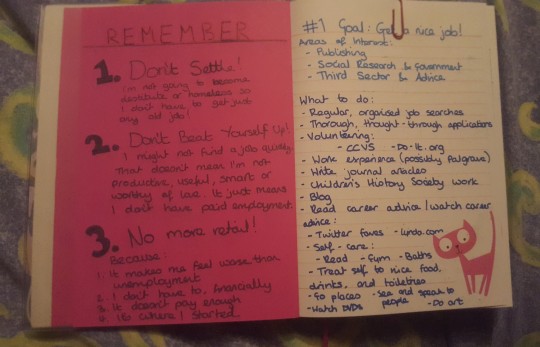 REMEMBER
1. Don't Settle!
I'm not going to become
destitute or homeless so
I don't have to get just
any old job!
2. Don't Beat Yourself Up!
I might not find a job quickly.
That doesn't mean I'm not
productive, useful, smart or
worthy of love. It just means
I don't have paid employment.
3. No more retail!
Because:
1. It makes me feel worse than
unemployment
2. I don't have to, financially
3. It doesn't pay enough
4. It's where I started
#1 Goal: Get a nice job!
Areas of Interest:
- Publishing
- Social Research & Government
- Third Sector & Advice
What to do:
- Regular, organised job searches
- Thorough, thought-through applications
- Volunteering:
- CCVS - Do-it.org
- Work experience (possibly Palgrave)
- Write journal articles
- Children's History Society work
- Blog
- Read career advice/watch career
advice:
- Twitter faves - Lynda.com
- Self-care:
- Read - Gym - Baths
- Treat self to nice food,
drinks, and toiletries
- Go places - See and speak to
people
- Watch DVDs - Do art